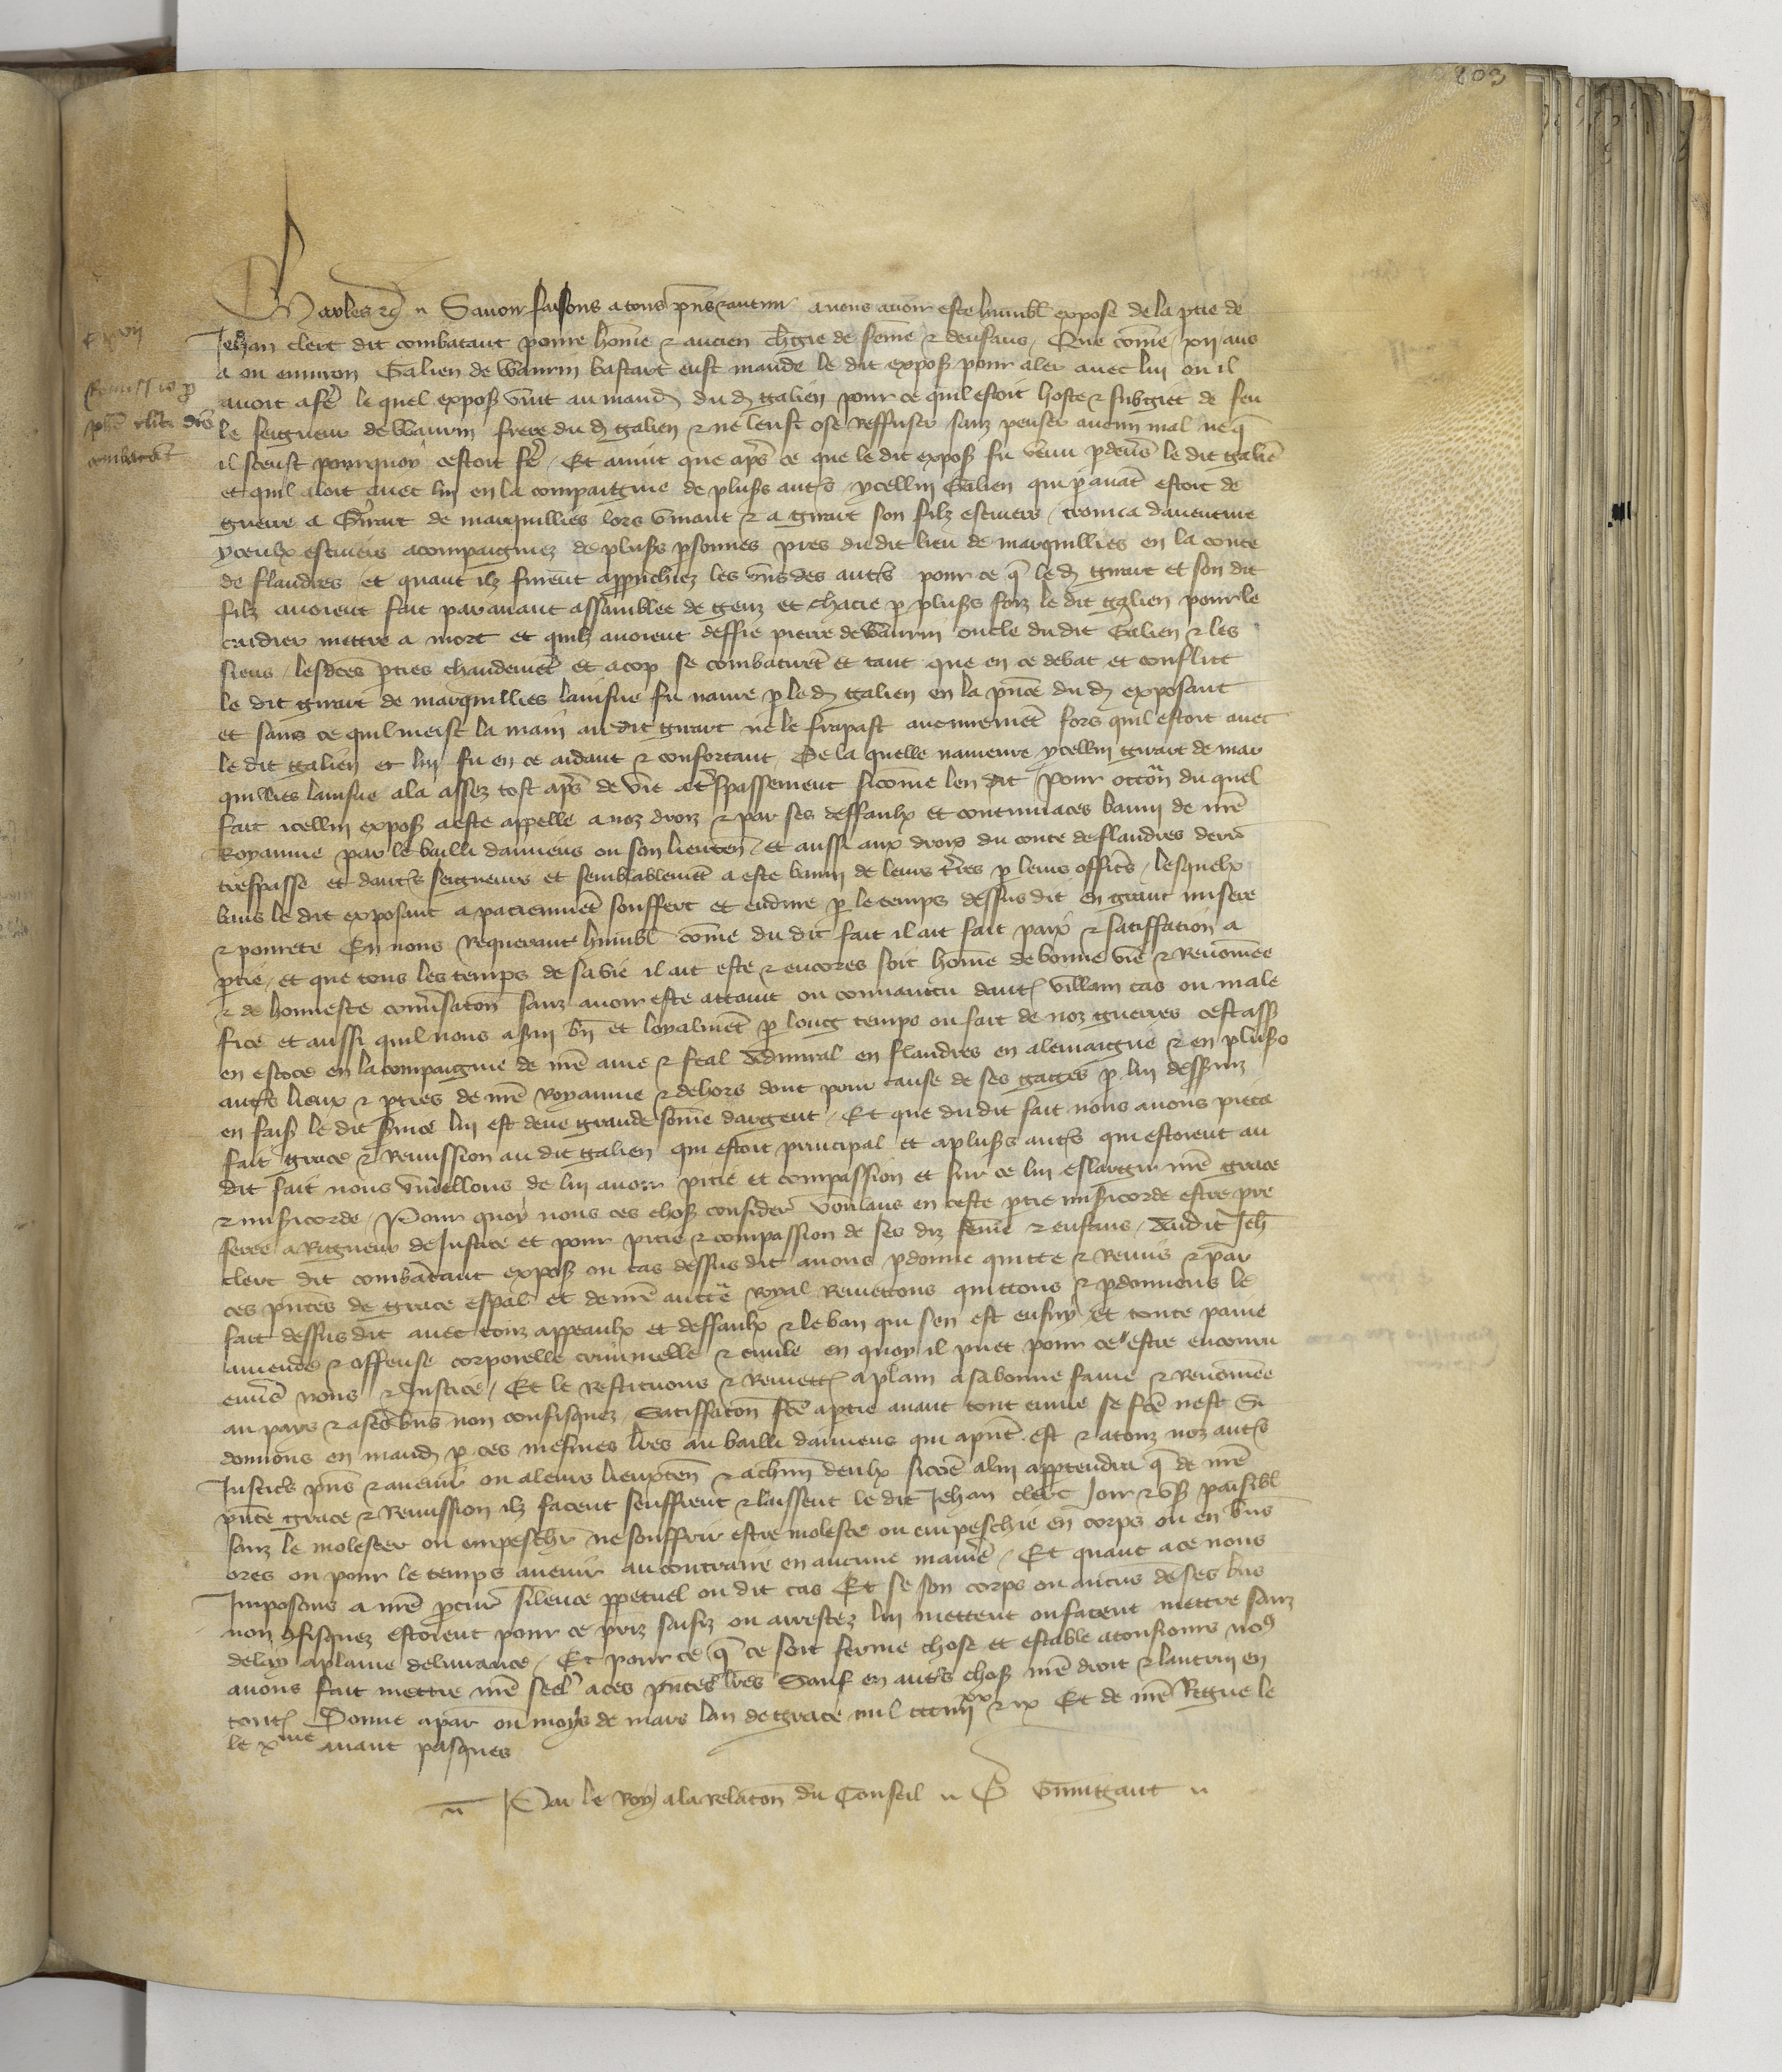 103
Charles etc. Savoir faisons a tous pñs et avenir avons avoir este humbl expose de la ptie de
C xvii
Jehan clerc dit combatant povre hom̃e & ancien chgie de fem̃e & denfans / Que com̃e / xii ans
a ou environ Galien de Wavrin bastart eust mande le dit expoß pour aler avec lui ou il
Remissio p
avoit afẽ le quel expoß vint au mand du d galien pour ce quil estoit hoste & subgiet de feu
Jehe clerc dis
le seigneur de Wavrin frere du d galien & ne leust ose reffuser sanz penser aucun mal ne q̃
combatant
il sceust pourquoy cestoit fẽ / Et avint que aps ce que le dit expoß fu venu pdevs le dit galien
et quil aloit avec lui en la compaignie de plußs autres ycellui Galien qui pavant estoit de
guerre a Girart de marquillies lors vivant & a girart son filz escuiers / trouva daventure
yceulx escuiers acompaigniez de plußs psonnes pres du dit lieu de marquillies en la conte
de flandres et quant ilz furent approuchiez les uns des autres pour ce q̃ le d girart et son dit
filz avoient fait paravant assamblee de genz et chacie p plußs foiz le dit galien pour le
cuidier mettre a mort et quilz avoient deffie pierre de Wavrin oncle du dit Galien & les
siens / lesdces pties chaudemẽt et acop se combatirẽt et tant que en ce debat et conflict
le dit girart de marquillies lainsne fu navre p le d galien en la pñce du d exposant
et sans ce quil meist la main au dit girart ne le frapast aucunemẽt fors quil estoit avec
le dit galien et lui fu en ce aidant & confortant / De la quelle navreure ycellui girart de mar
quillies lainsne ala assez tost aps de vie a trespassement sicom̃e len dit / Pour occõn du quel
fait icellui expoß a este appelle a noz droiz & par ses deffaulx et contumaces banni de nr̃e
Royaume par le bailli damiens ou son lieuten / et aussi aux droiz du conte de flandres derr̃
trespasse et dautres seigneurs et semblablemẽt a este banni de leurs tres p leurs officrs / lesquelx
bans le dit exposant a paciemmẽt souffert et endure p le temps dessus dit en grant misere
& povrete En nous requerant humbl com̃e du dit fait il ait fait paix & satiffation a
ptie / et que tous les temps de sa vie il ait este & encores soit hom̃e de bonne vie & renom̃ee
& de honneste convsatoñ sanz avoir este attaint ou convaincu dautr villain cas ou male
fice et aussi quil nous a svi bñ et loyalmẽt p long temps ou fait de noz guerres cestass
en escoce en la compaignie de nr̃e ame & feal ladmiral en flandres en alemaigne & en plußs
autres lieux & pties de nr̃e Royaume & dehors dont pour cause de ses gaiges p lui desßviz
en faisß le dit ßvice lui est deue grande som̃e dargent / Et que du dit fait nous avons pieca
fait grace & Remission au dit galien qui estoit principal et a plußs autres qui estoient au
dit fait nous vueillons de lui avoir pitie et compassion et sur ce lui eslargir nr̃e grace
& misßicorde / Pour quoy nous ces choß considerẽ voulans en ceste ptie misßicorde estre pre
feree a Rigueur de justice et pour pitie & compassion de ses diz fem̃e & enfans / audit Jeh̃
clerc dit combatant expoß ou cas dessus dit avons pdonne quitte & Remis & par
ces pñtes de grace espãl et de nr̃e auctẽ Royal Remettons quittons & pdonnons le
fait dessus dit avec touz appeaulx et deffaulx & le ban qui sen est ensuy et toute paine
amende & offense corporelle criminelle & civile en quoy il puet pour ce estre encouru
envs nous & Justice / Et le Restituons & Remett a plain a sa bonne fame & Renom̃ee
au pays & a ses bñs non confisquez / Satiffatoñ fcẽ a ptie avant tout euvre se fcẽ nest Si
donnons en mand p ces mesmes lr̃es au bailli damiens qui apñt est & a touz noz autres
Justicrs pñs & avenir ou a leurs lieuxten & a chũn deulx sicom̃e a lui apptendra q̃ de nr̃e
pñte grace & Remission ilz facent seuffrent & laissent le dit Jehan clerc joir & usß paisibl
sanz le molester ou empeschr ne souffrir estre moleste ou empeschie en corps ou en bñs
ores ou pour le temps avenir au contraire en aucune maniẽ / Et quant a ce nous
Imposons a nr̃e pcur silence ppetuel ou dit cas Et se son corps ou aucuns de ses bñs
non 9fisquez estoient pour ce priz saisiz ou arrestez lui mettent ou facent mettre sanz
delay a plaine delivrance / Et pour ce q̃ ce soit ferme chose et estable a tousiours no9
avons fait mettre nr̃e seel a ces pñtes lr̃es Sauf en autres choß nr̃e droit & lautruy en
tout Donne a paris ou moys de mars lan de grace mil ccc iiii xx & ix Et de nr̃e Regne le
le x me avant pasques
Par le Roy a la relatoñ du Conseil G Gũingant